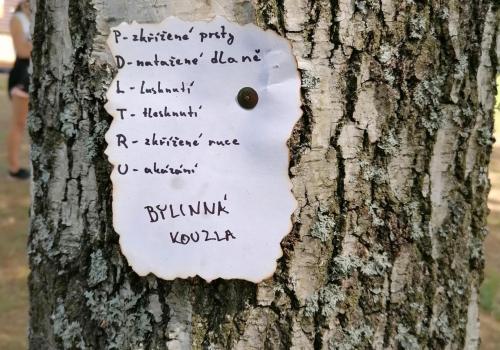 P - zkřížené prsty
D - natažené dlaně
L - lusknutí
T - tlesknutí
R - zkřížené ruce
U - ukázání
BYLINNÁ
KOUZLA